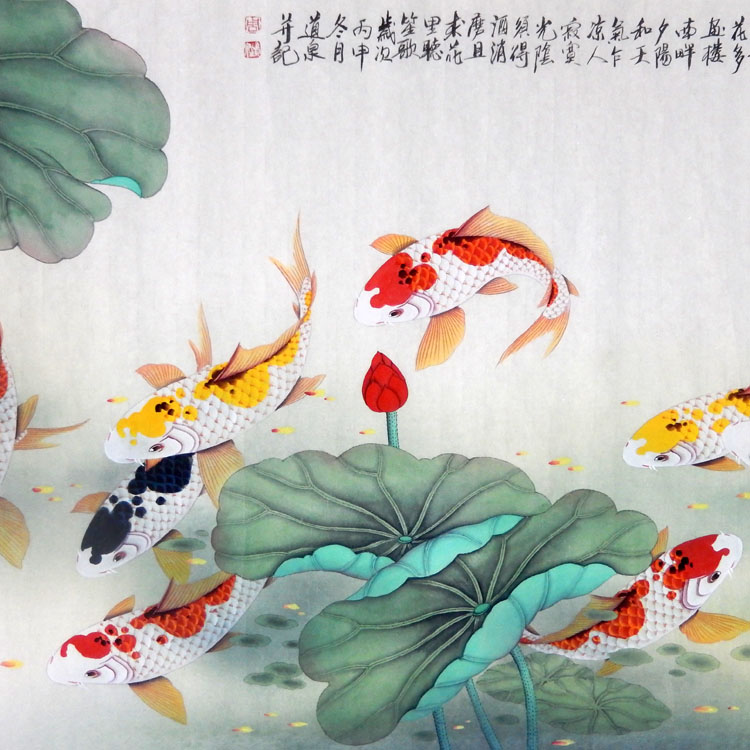 花多
画楼
南畔
夕陽
和天
氣乍
凉人
寂寞
光陰
須得
酒消
磨且
来花
里聽
笙歌
歲次
丙申
冬月
道泉
并記